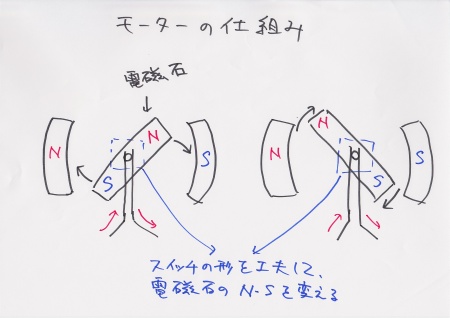 モーターの仕組み
電磁石
N
N
S
S
N
N
S
S
スイッチの形を工夫して、
電磁石のN-Sを変える